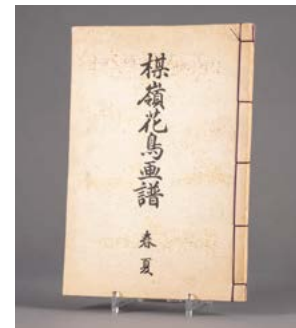 楳嶺花鳥画譜
春夏